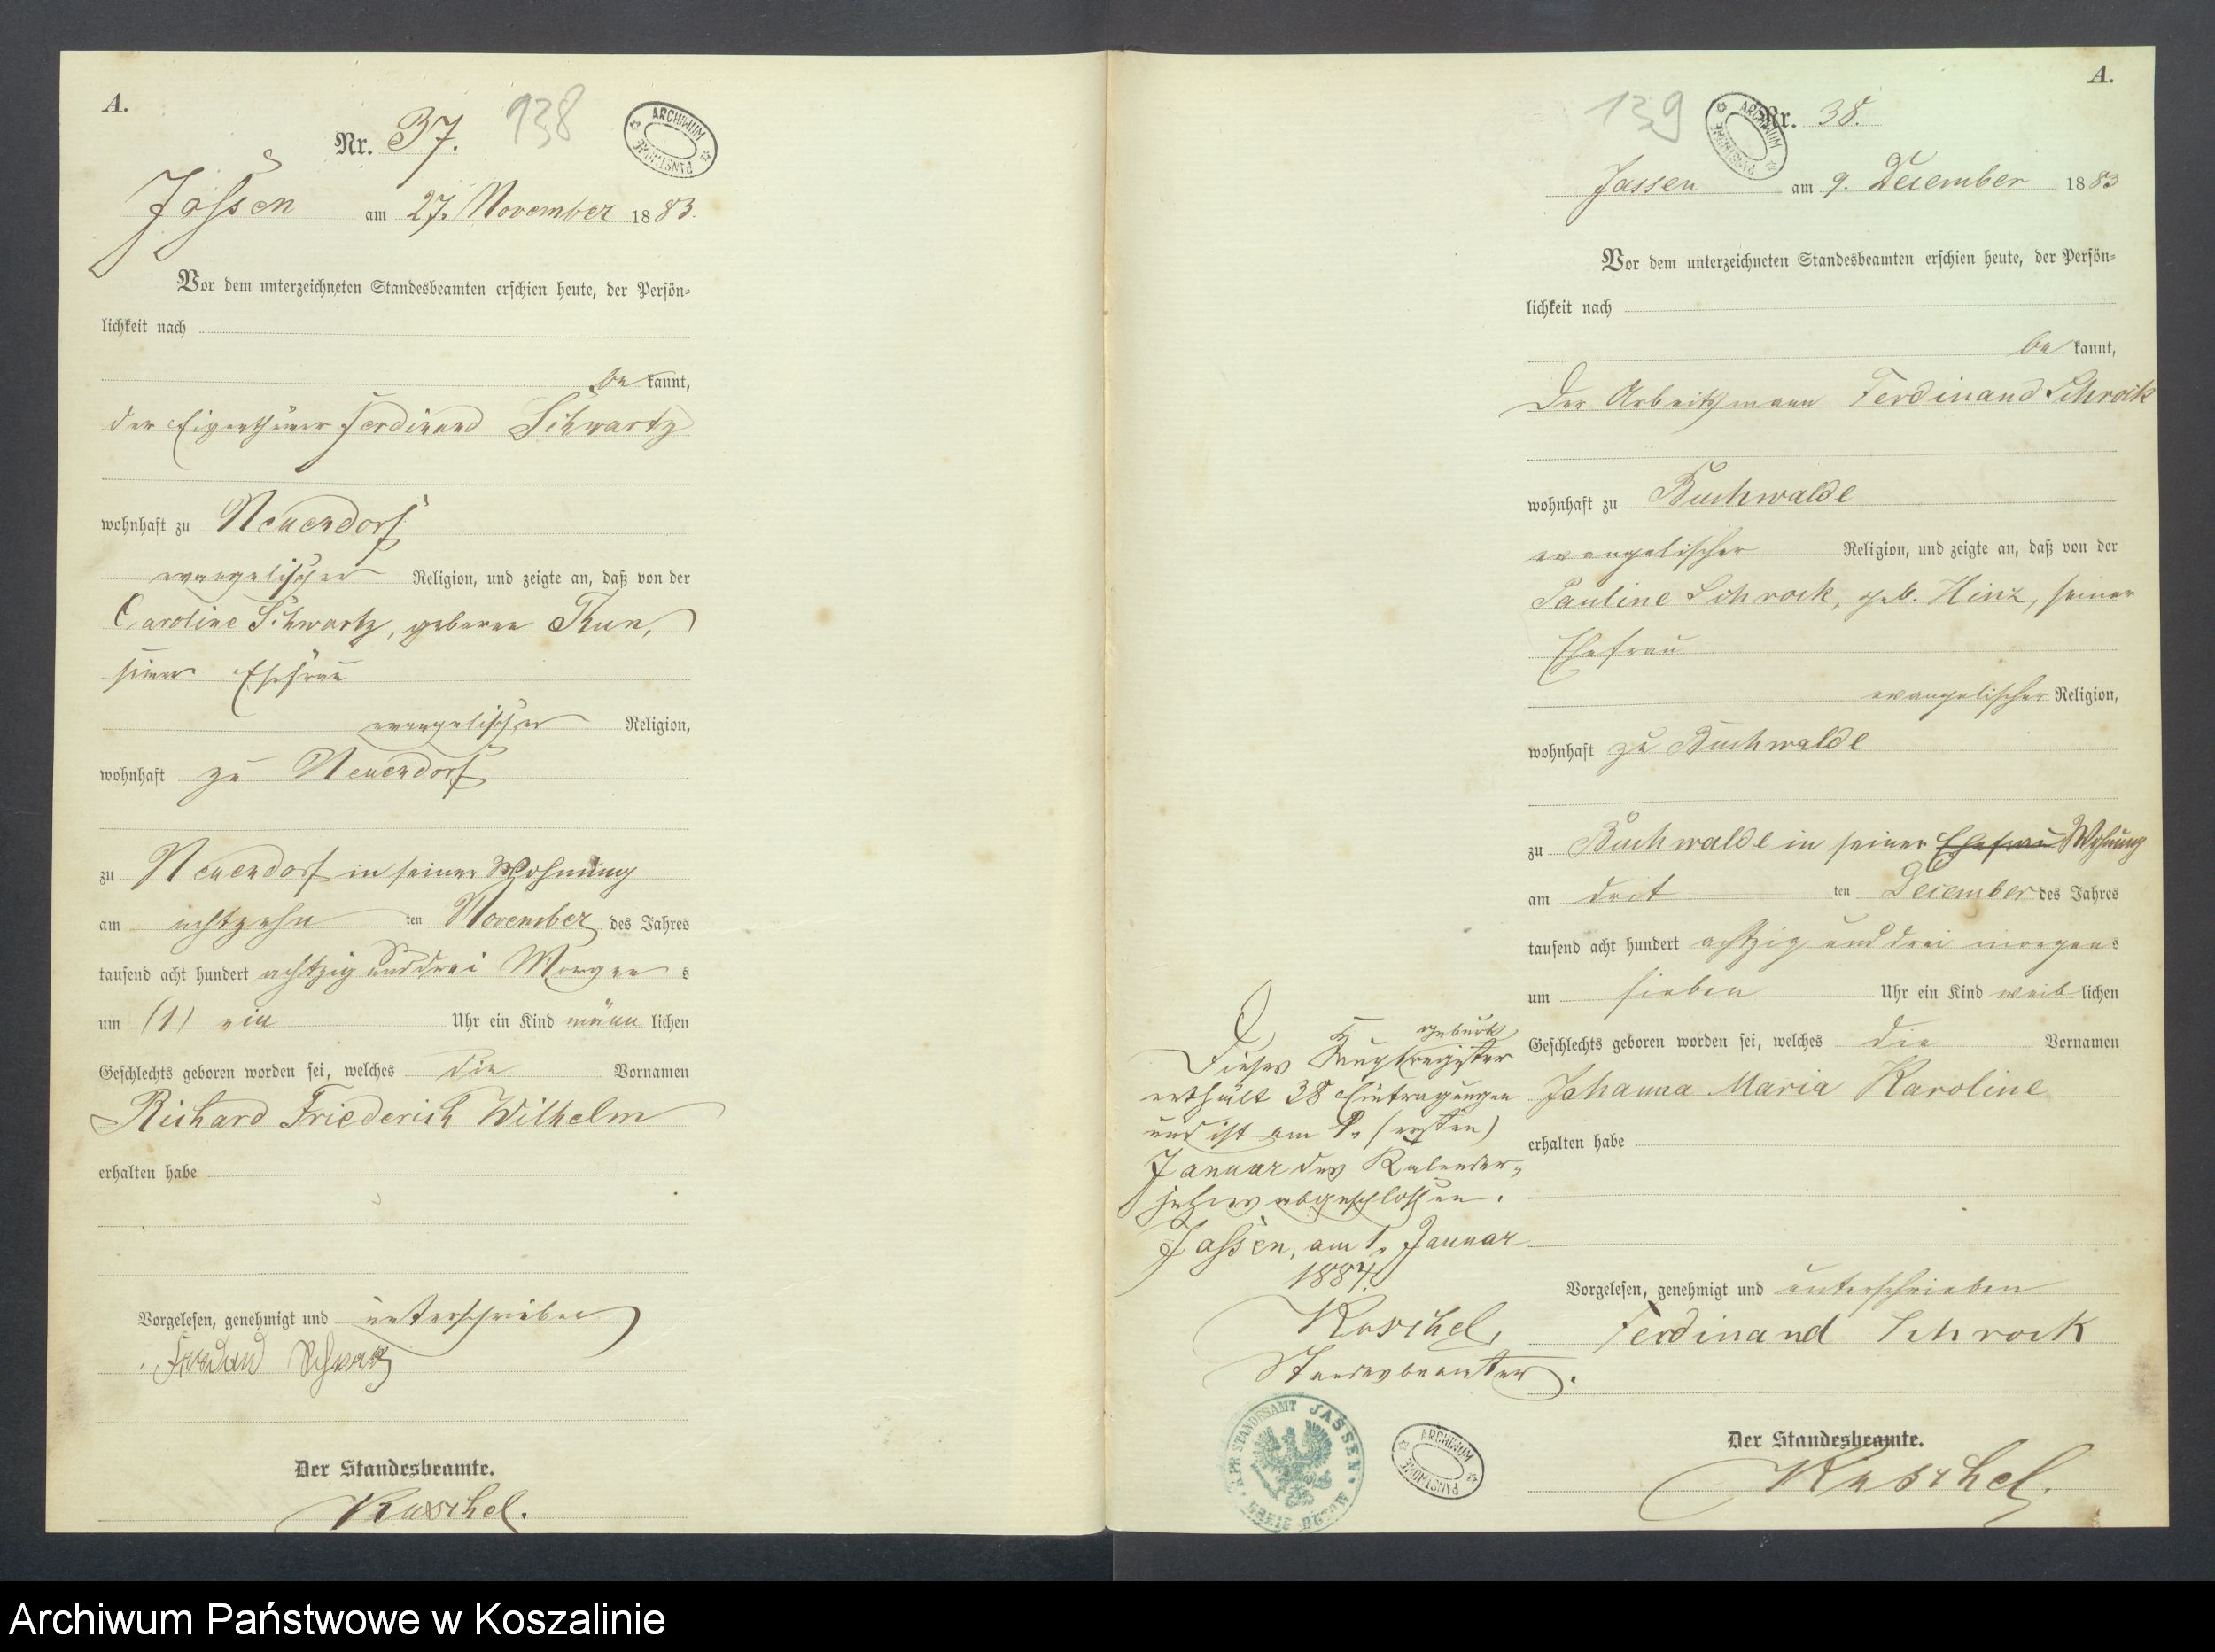 A.
Nr. 37.
138
ARCHIWUM PAŃSTWOWE
Jassen am 27. November 1883.
Vor dem unterzeichneten Standesbeamten erschien heute, der Persön-
lichkeit nach
bekannt,
der Eigenthümer Ferdinand Schwartz
wohnhaft zu Neuendorf
evangelischer Religion, und zeigte an, daß von der
Caroline Schwartz, geborene Kun,
seiner Ehefrau
evangelischer Religion,
wohnhaft zu Neuendorf
zu Neuendorf in seiner Wohnung
am achtzehn ten November des Jahres
tausend acht hundert achtzig und drei Morgens
um (1) ein Uhr ein Kind männlichen
Geschlechts geboren worden sei, welches die Vornamen
Richard Friederich Wilhelm
erhalten habe
Vorgelesen, genehmigt und unterschrieben
Schwartz
Der Standesbeamte.
Kuschel.
A.
139
ARCHIWUM PAŃSTWOWE
Nr. 38.
Jassen am 9. December 1883
Vor dem unterzeichneten Standesbeamten erschien heute, der Persön-
lichkeit nach
bekannt,
Der Arbeitsmann Ferdinand Schrock
wohnhaft zu Buchwalde
evangelischer Religion, und zeigte an, daß von der
Pauline Schrock, geb. Hinz, seiner
Ehefrau
evangelischer Religion,
wohnhaft zu Buchwalde
zu Buchwalde in seiner Ehefrau Wohnung
am drit ten December des Jahres
tausend acht hundert achtzig und drei morgens
um sieben Uhr ein Kind weiblichen
Geschlechts geboren worden sei, welches die Vornamen
Johanna Maria Karoline
erhalten habe
Vorgelesen, genehmigt und unterschrieben
Ferdinand Schrock
Der Standesbeamte.
Kuschel.
geburts
Dieses Hauptregister
enthält 38 Eintragungen
und ist am 1. (ersten)
Januar des Kalender-
jahres abgeschlossen.
Jassen, am 1. Januar
1884.
Kuschel,
Standesbeamter.
K. PR. STANDESAMT JASSEN. KREIS BÜTOW
ARCHIWUM PAŃSTWOWE
Archiwum Państwowe w Koszalinie